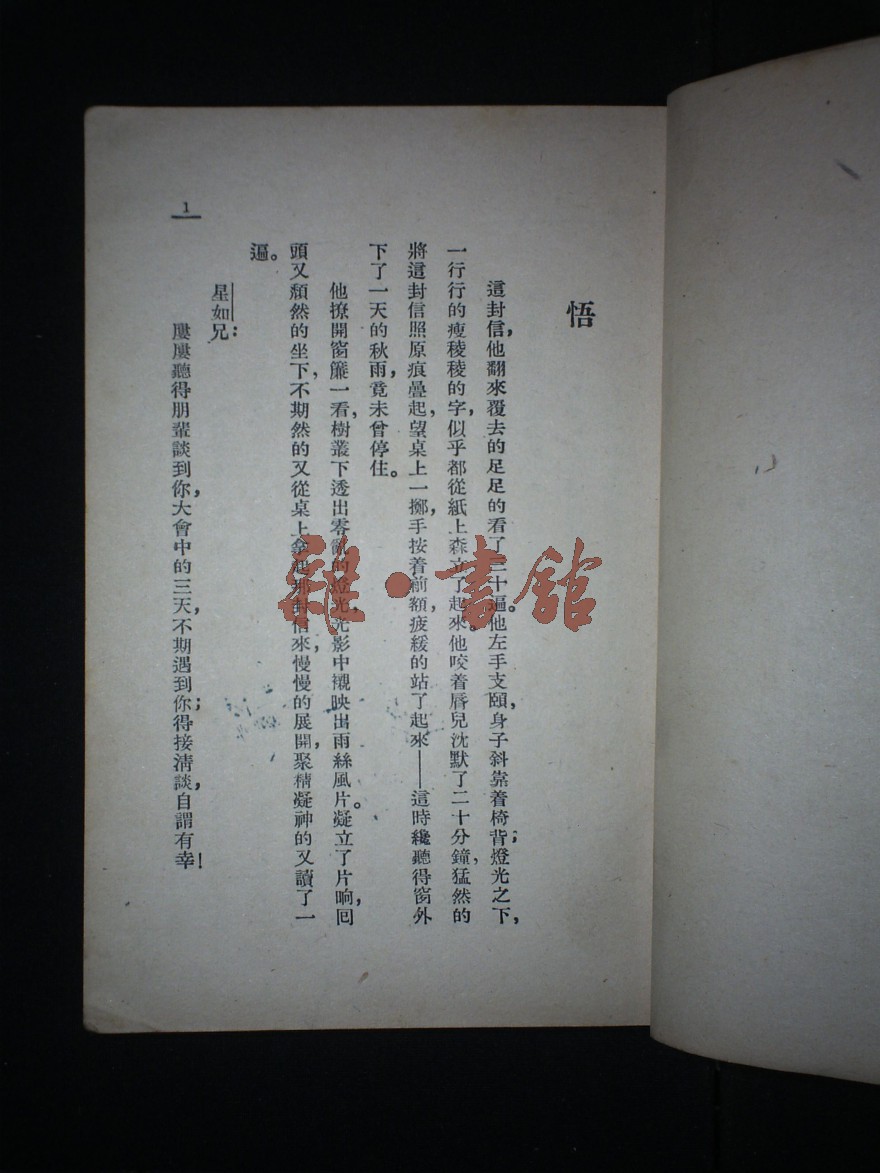 悟
這封信，他翻來覆去的足足的看了三十遍。他左手支頤，身子斜靠着椅背；燈光之下，
一行行的瘦稜稜的字，似乎都從紙上森立了起來。他咬着唇兒沈默了二十分鐘，猛然的
將這封信照原痕疊起，望桌上一擲，手按着前額，疲緩的站了起來——這時纔聽得窗外
下了一天的秋雨，竟未曾停住。
他撩開窗簾一看，樹叢下透出零亂的燈光，光影中襯映出雨絲風片。凝立了片晌，囘
頭又頹然的坐下，不期然的又從桌上拿起那封信來，慢慢的展開，聚精凝神的又讀了一
遍。
星如兄：
屢屢聽得朋輩談到你，大會中的三天，不期遇到你；得接淸談，自謂有幸！
1
雜·書館